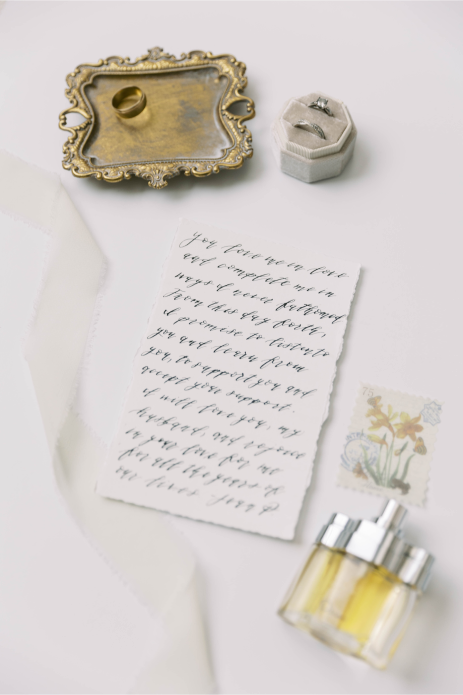 you love me in love
and complete me in
ways I never fathomed
From this day forth,
I promise to listen to
you and learn from
you, to support you and
accept your support.
I will love you, my
husband, and rejoice
in your love for me
for all the years of
our lives